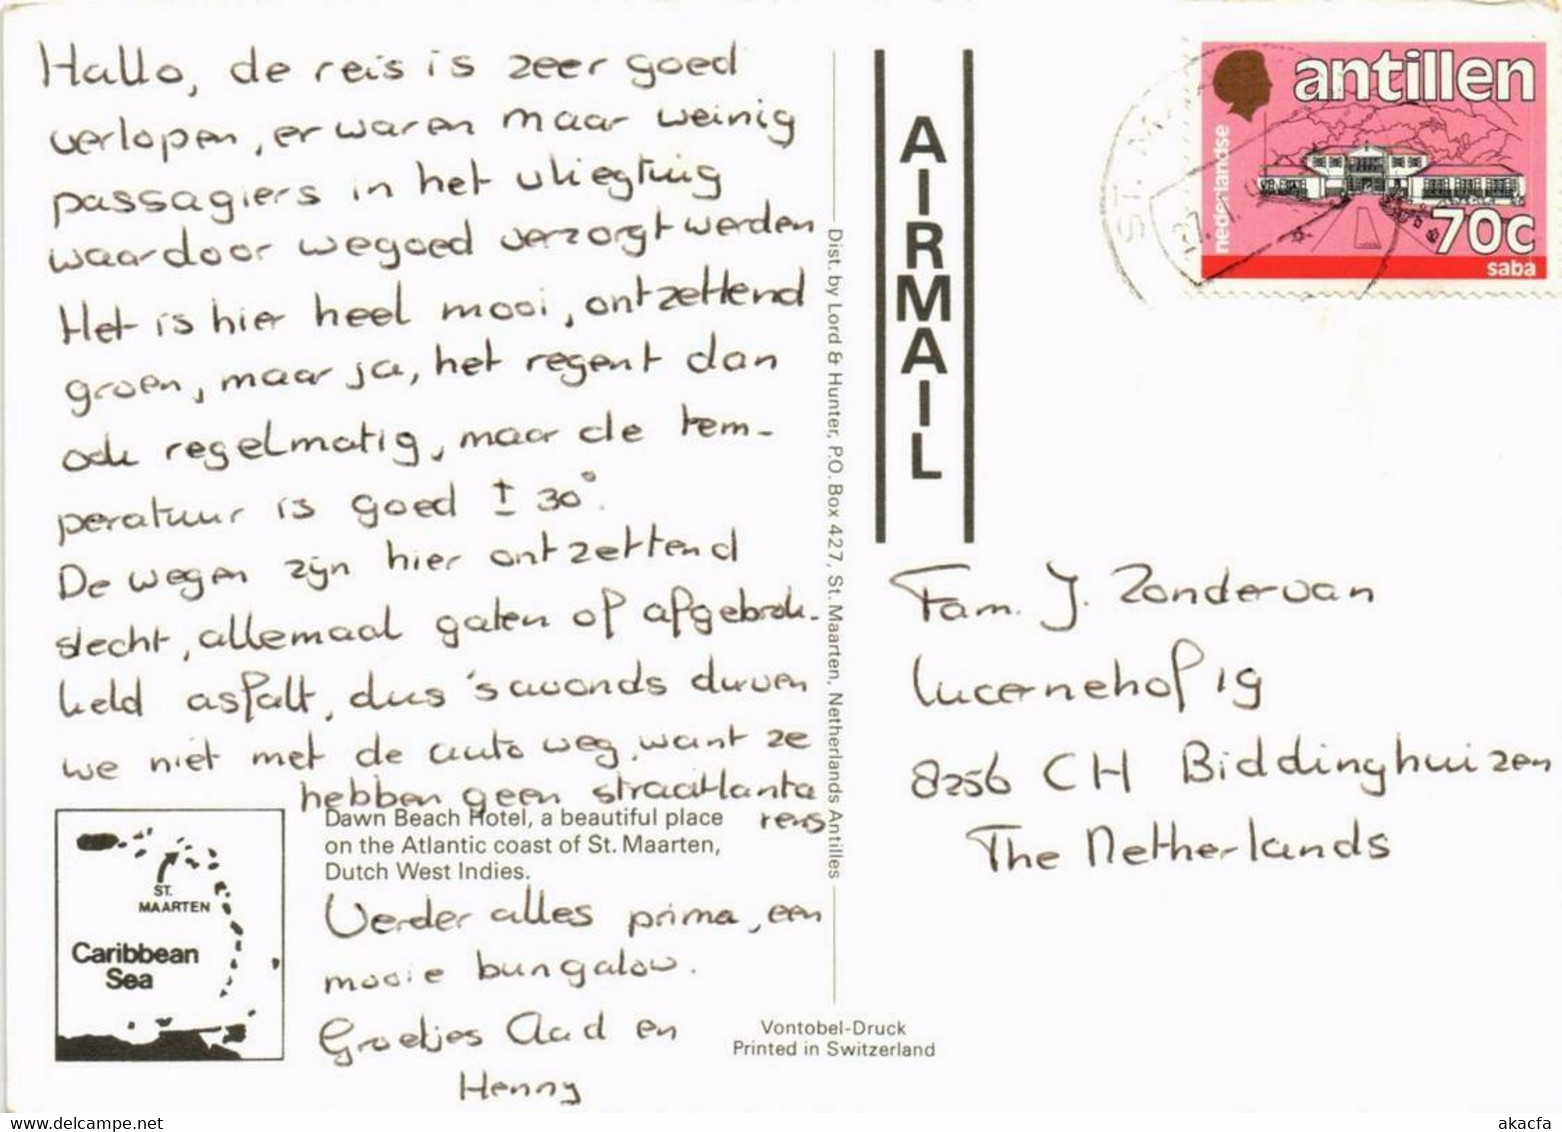 Hallo, de reis is zeer goed
verlopen, er waren maar weinig
passagiers in het vliegtuig
waardoor we goed verzorgt werden
Het is hier heel mooi, ontzettend
groen, maar ja, het regent dan
ook regelmatig, maar de tem-
peratuur is goed ± 30°.
De wegen zijn hier ontzettend
slecht, allemaal gaten of afgebrok-
keld asfalt, dus 's avonds durven
we niet met de auto weg, want ze
hebben geen straatlanta
rens
Dawn Beach Hotel, a beautiful place
on the Atlantic coast of St. Maarten,
Dutch West Indies.
Verder alles prima, een
mooie bungalow.
Groetjes Aad en
Henny
ST.
MAARTEN
Caribbean
Sea
Dist. by Lord & Hunter, P.O. Box 427, St. Maarten, Netherlands Antilles
Vontobel-Druck
Printed in Switzerland
AIRMAIL
ST. MA
nederlandse
antillen
70c
saba
Fam. J. Zondervan
Lucernehof 19
8256 CH Biddinghuizen
The Netherlands
akacfa